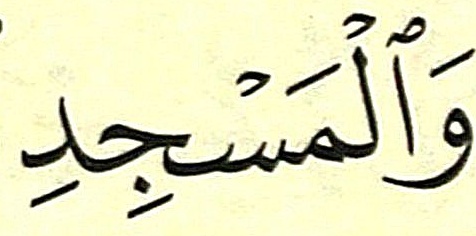 وَٱلْمَسْجِدِ